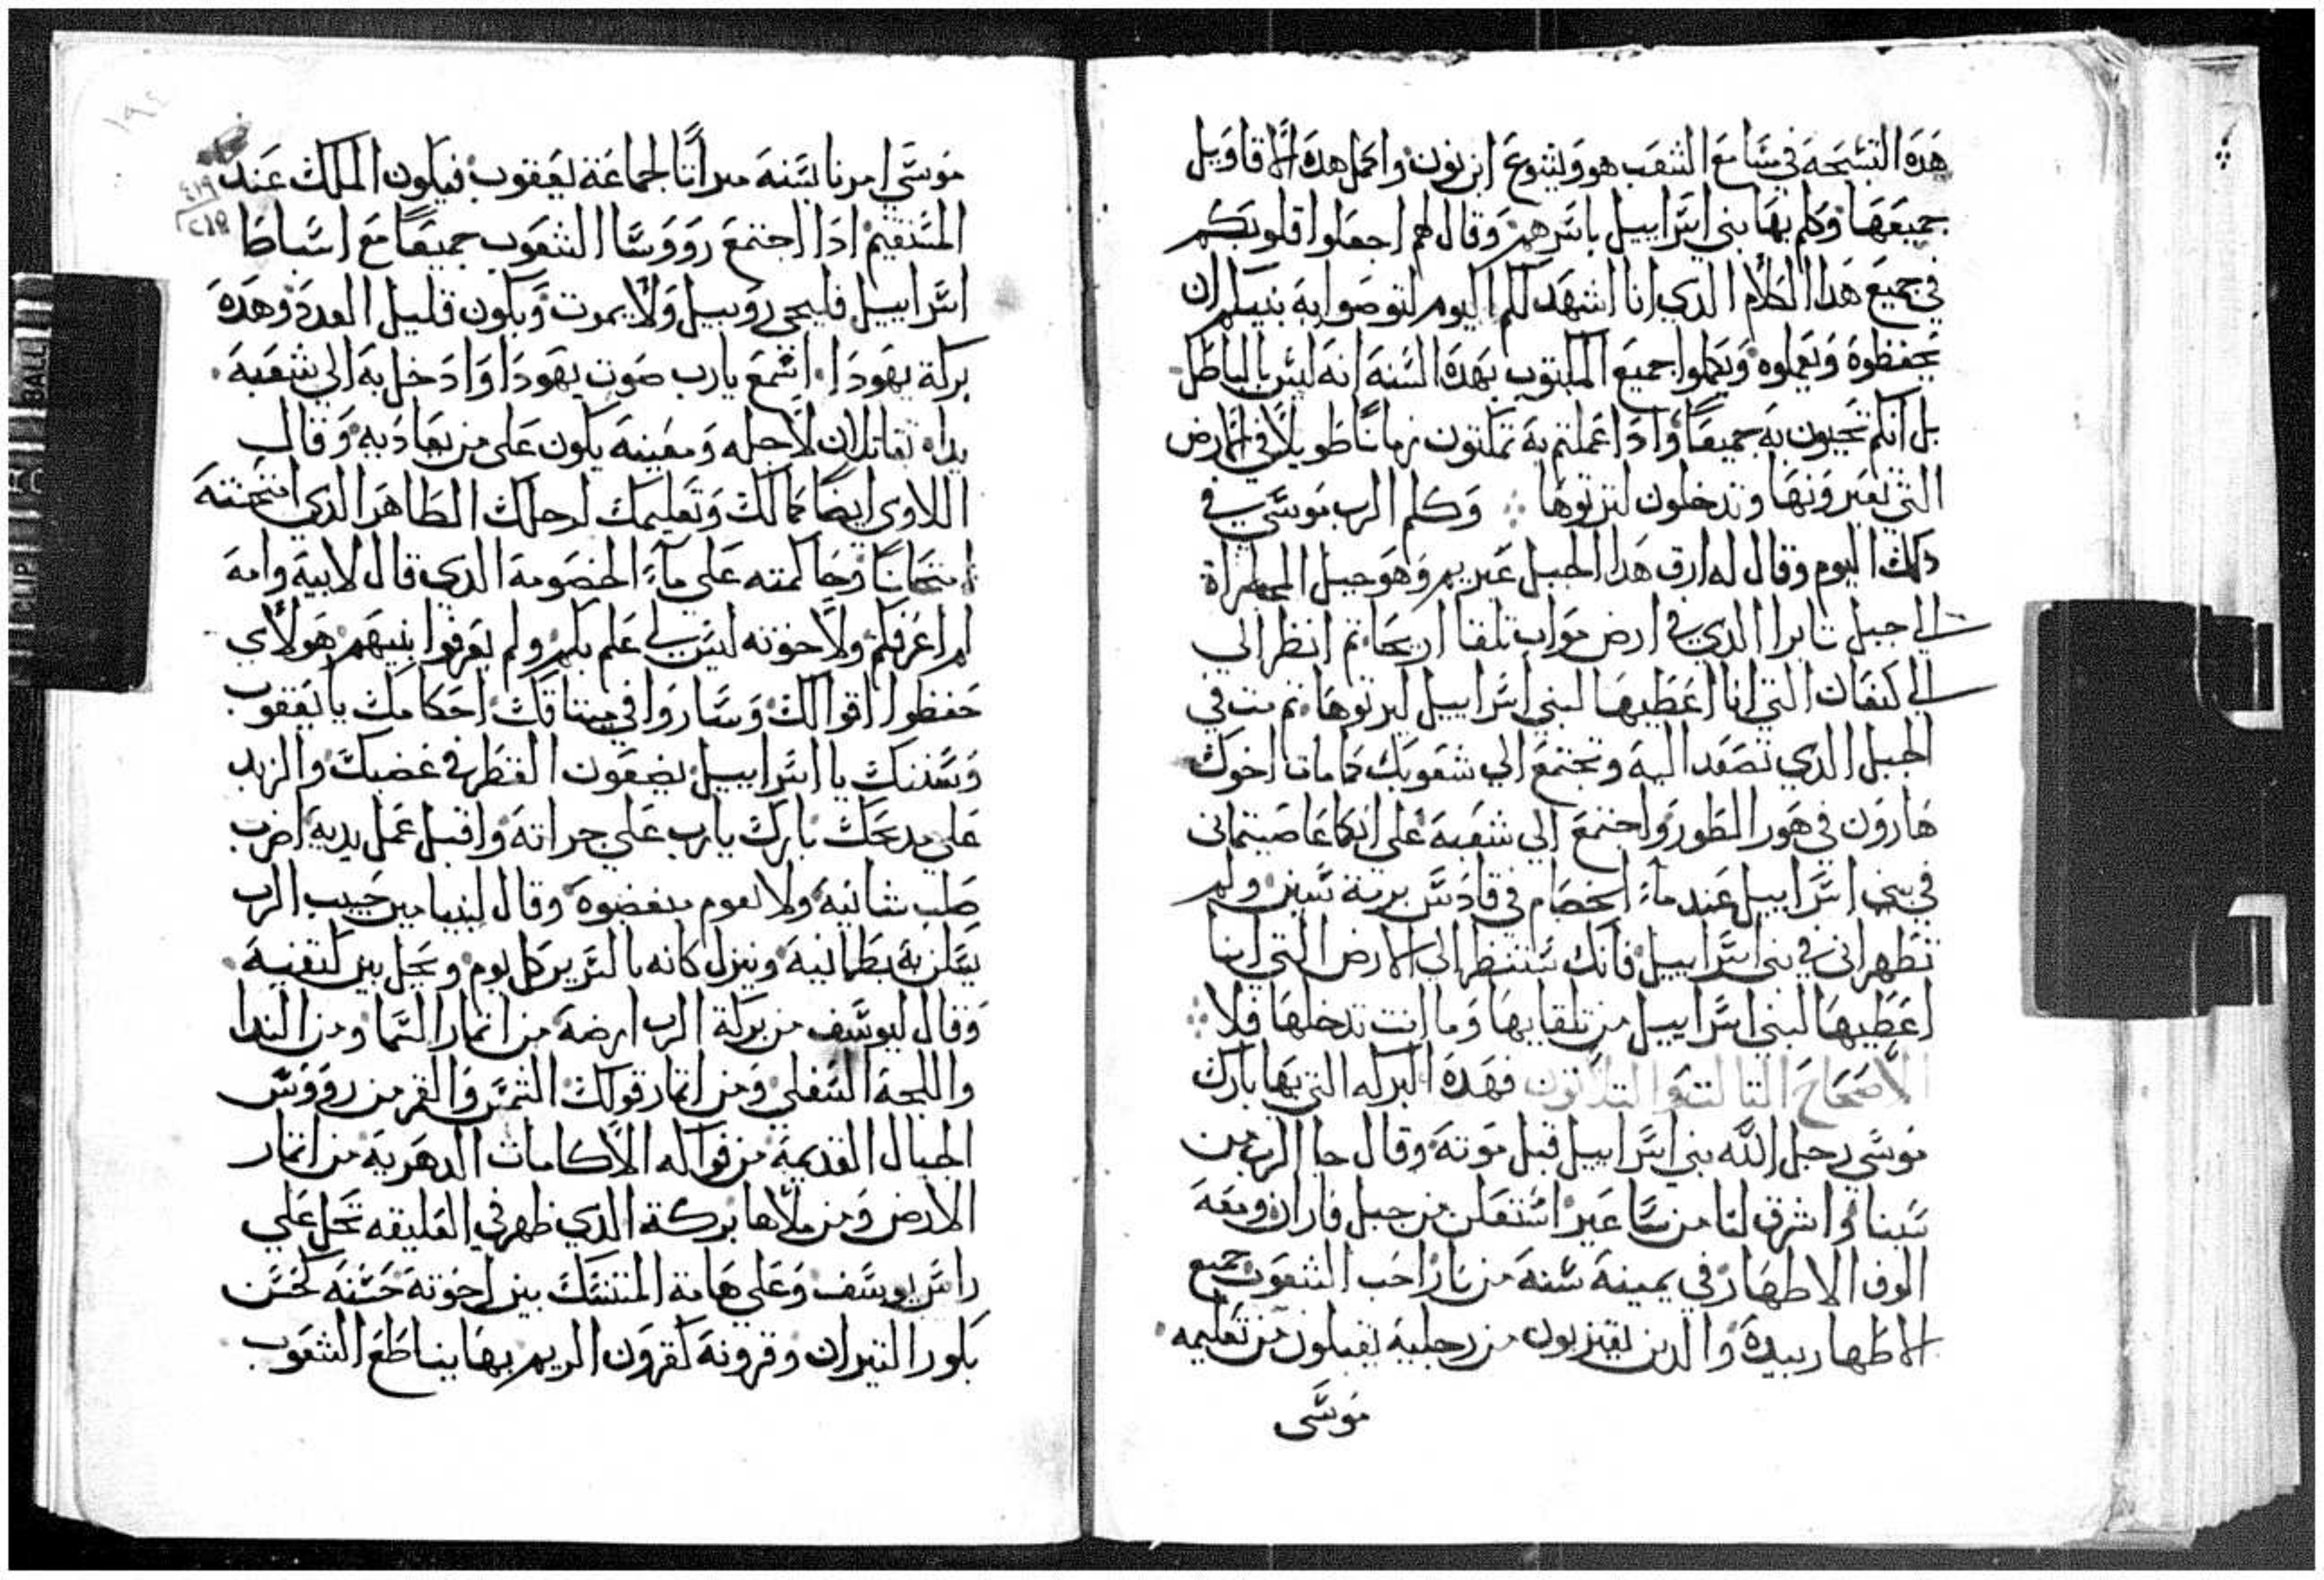 هذه التسبحة في مسامع الشعب هو ويشوع ابن نون واكمل هذه الاقاويل
جميعها وكلم بها بني اسراييل باسرهم وقال لهم اجعلوا قلوبكم
في جميع هذا الكلام الذي انا اشهد لكم اليوم لتوصوا به بنيكم ان
يحفظوه ويعملوه ويكملوا جميع المكتوب بهذه السنة انه ليس بالباطل
بل انكم تحيون به جميعا واذا عملتم به تمكتون زمانا طويلا في الارض
التي تعبرونها وتدخلون لترثوها وكلم الرب موسي في
ذلك اليوم وقال له ارق هذا الجبل عبريم وهو جبل
الي جبل نابوا الذي في ارض مواب تلقا اريحا ثم انظر الي
الي كنعان التي انا اعطيها لبني اسراييل ليرثوها ثم مت في
الجبل الذي تصعد اليه وتجتمع الي شعوبك كما مات اخوك
هارون في هور الطور واجتمع الي شعبه علي انكما عاصيتماني
في بني اسراييل عند ماء الخصام في قادس برية سين ولم
تطهراني في بني اسراييل فانك ستنظر الي الارض التي انا
اعطيها لبني اسراييل من تلقايها وما انت تدخلها فلا
الاصحاح التالت والتلاتون فهذه البركه التي بها بارك
موسي رجل الله بني اسراييل قبل موته وقال جا الرب من
سينا واشرق لنا من ساعير استعلن من جبل فاران ومعه
الوف الاطهار في يمينه سنة من نار احب الشعوب جميع
الاطهار بيده والدين يقتربون من رجليه يقبلون من تعليمه
موسي
موسي امرنا بسنه ميراثا لجماعة يعقوب فيكون الملك عند
المستقيم اذا اجتمع رووسا الشعوب جميعا مع اسباط
اسراييل فليحي روبيل ولا يموت ويكون قليل العدد وهذه
بركة يهودا اسمع يارب صوت يهودا وادخل به الي شعبه
يداه تقاتلان لاجله ومعينه يكون علي من يعاديه وقال
اللاوي ايضا كمالك وتعليمك لرجلك الطاهر الذي امتحنته
امتحانا وحاكمته علي ماء الخصومة الذي قال لابيه وامه
لم اعرفكم ولاخوته ليس لي علم بكم ولم يعرفوا بنيهم هولاي
حفظوا اقوالك وساروا في ميتاقك احكامك يا يعقوب
وسننك يا اسراييل يضعون العطر في غضبك والزبد
علي مدبحك بارك يارب علي جراته واقبل عمل يديه اضرب
صلب شانيه ولا يقوم مبغضوه وقال لبنيامين حبيب الرب
يسكن به بطمانيه وينزل كانه بالسرير كل يوم ويحل بين كتفيه
وقال ليوسف من بركة الرب ارضه من اتمار السما ومن الندا
واللجة السفلي ومن اتمار قولك الشمس والقمر من رووس
الجبال القديمة من فواكه الاكامات الدهرية من اتمار
الارض ومن ملاها بركة الذي ظهر في العليقه تحل علي
راس يوسف وعلي هامة المتنسك بين اخوته حسنه كحسن
بكور التيران وقرونه كقرون الريم بها يناطح الشعوب